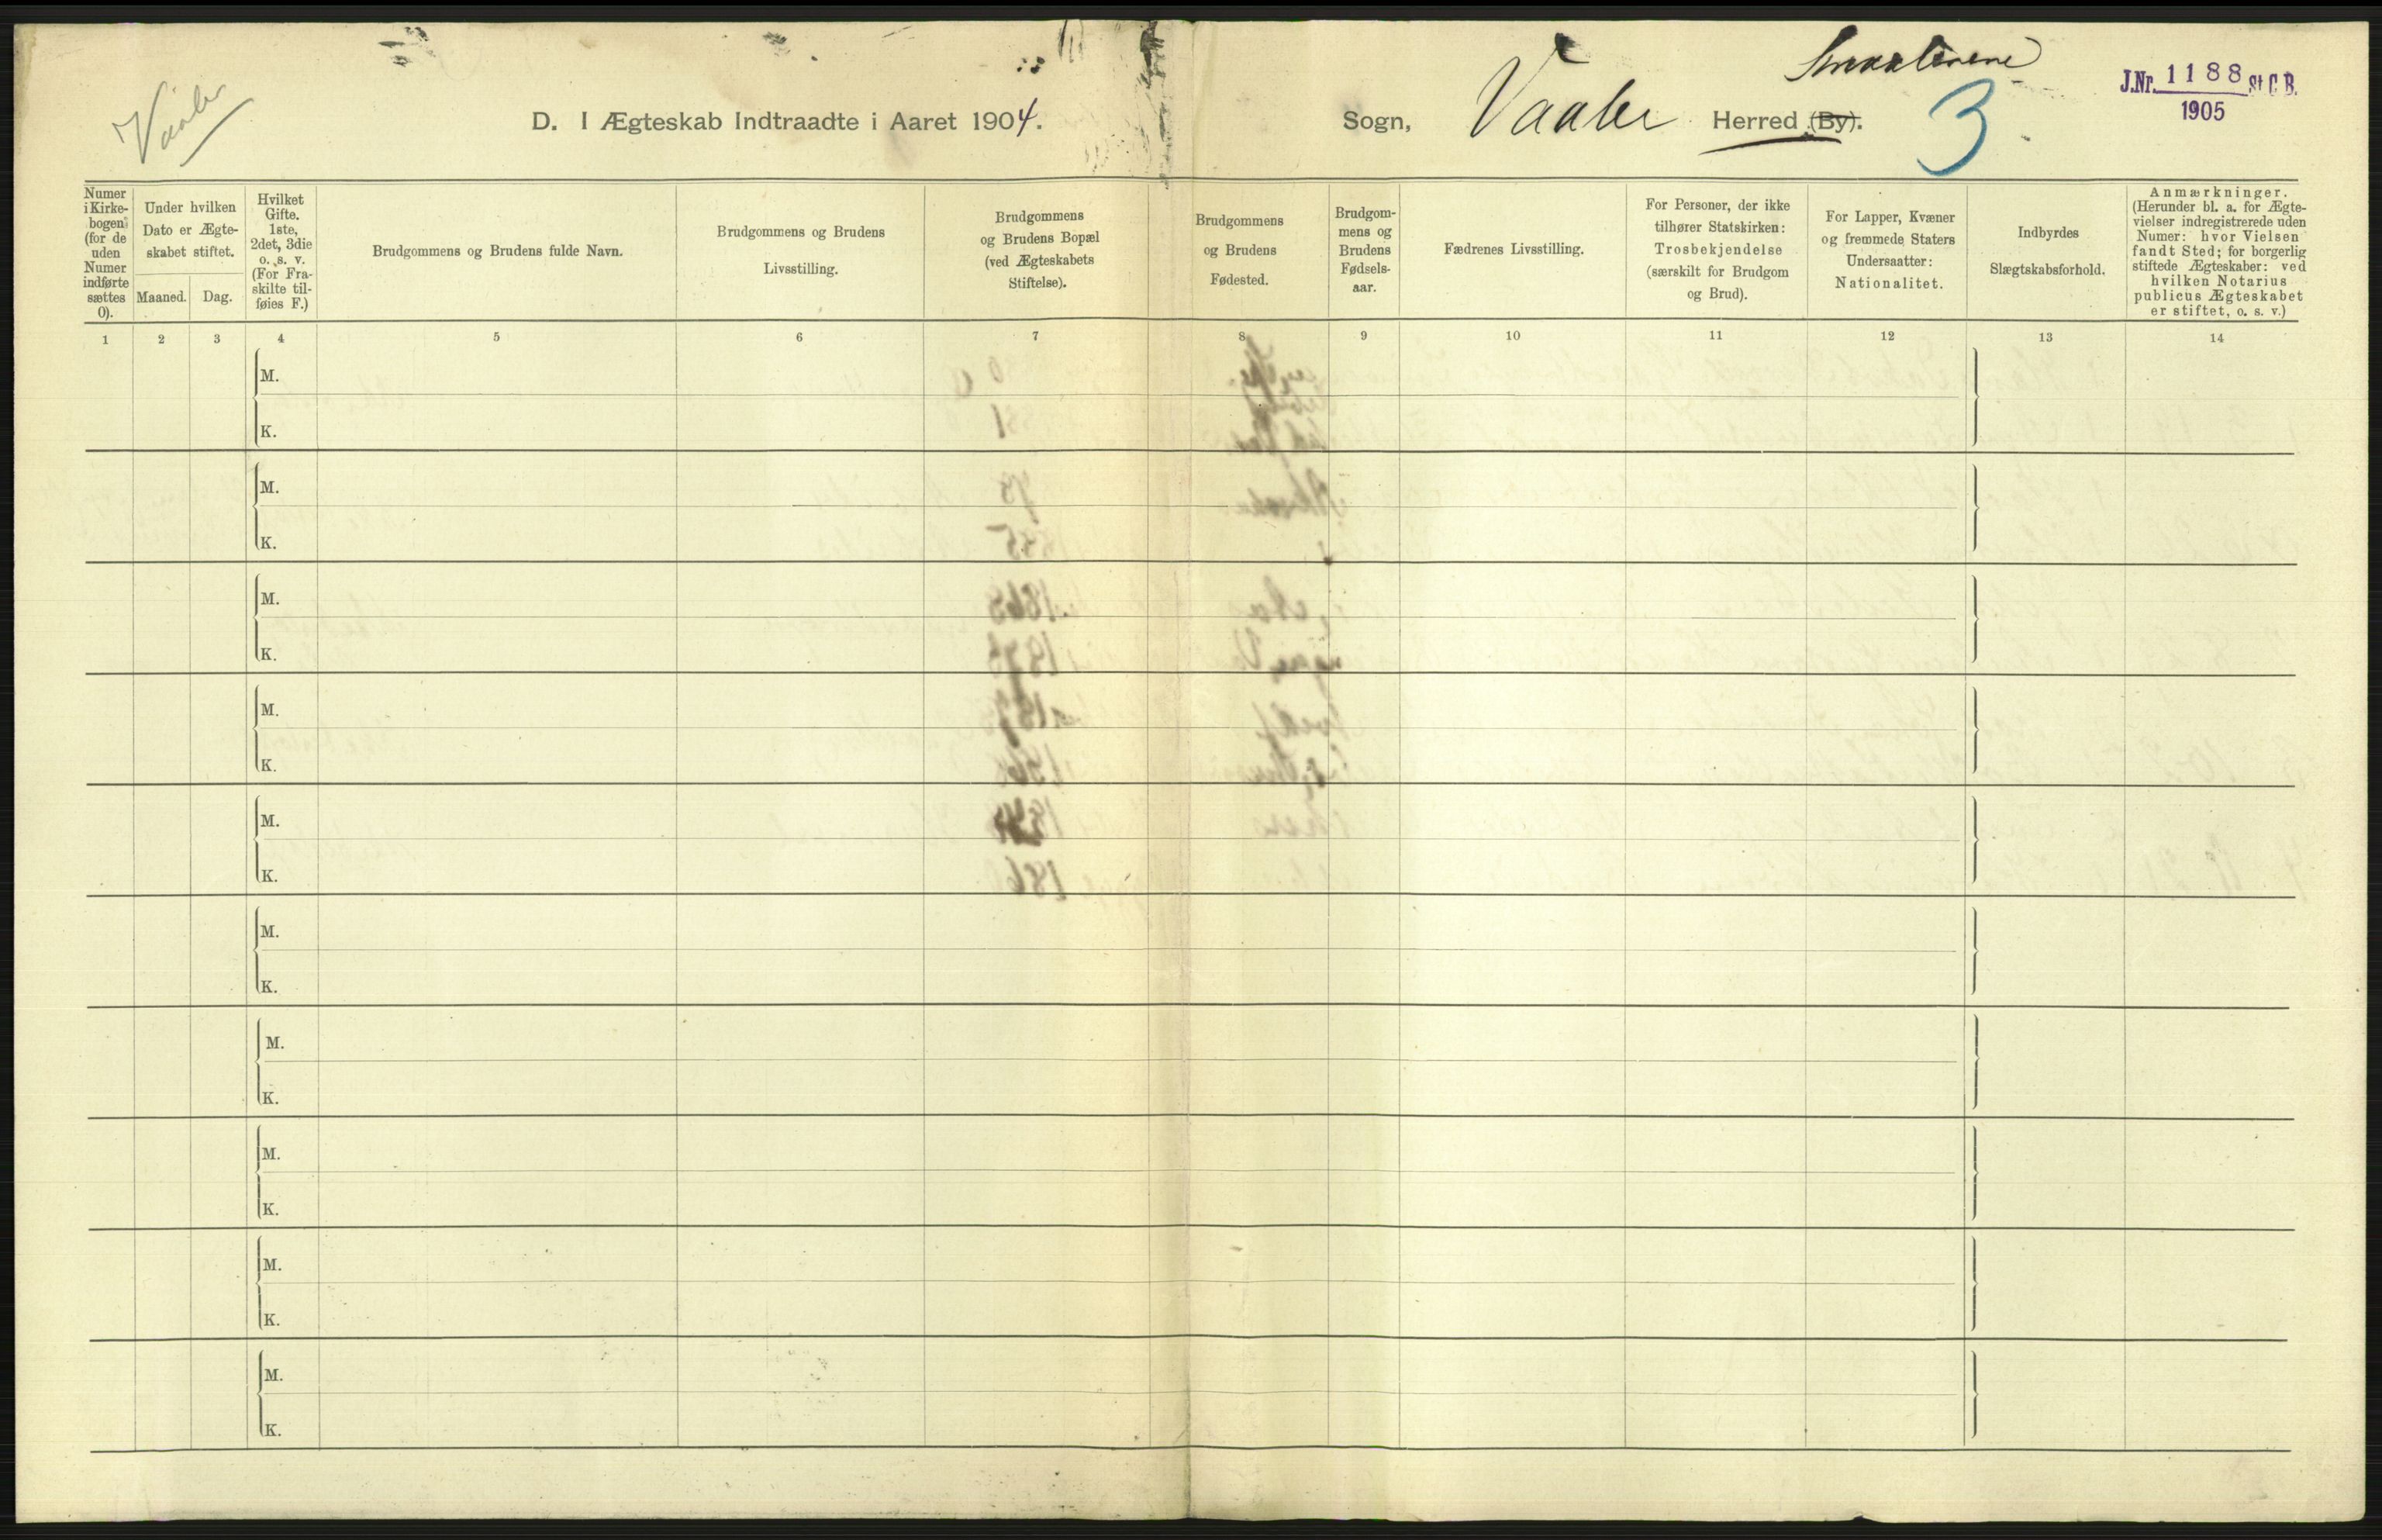 Vaaler
Smaalenene
J.Nr. 1188 St C. B.
1905
D. I Ægteskab Indtraadte i Aaret 1904.
Sogn, Vaaler Herred (By). 3
Numer i Kirke-bogen (for de uden Numer indførte sættes 0).
Under hvilken Dato er Ægte-skabet stiftet.
Maaned.
Dag.
Hvilket Gifte. 1ste, 2det, 3die o. s. v. (For Fra-skilte til-føies F.)
Brudgommens og Brudens fulde Navn.
Brudgommens og Brudens Livsstilling.
Brudgommens og Brudens Bopæl (ved Ægteskabets Stiftelse).
Brudgommens og Brudens Fødested.
Brudgom-mens og Brudens Fødsels-aar.
Fædrenes Livsstilling.
For Personer, der ikke tilhører Statskirken: Trosbekjendelse (særskilt for Brudgom og Brud).
For Lapper, Kvæner og fremmede Staters Undersaatter: Nationalitet.
Indbyrdes Slægtskabsforhold.
Anmærkninger. (Herunder bl. a. for Ægte-vielser indregistrerede uden Numer: hvor Vielsen fandt Sted; for borgerlig stiftede Ægteskaber: ved hvilken Notarius publicus Ægteskabet er stiftet, o. s. v.)
1 2 3 4 5 6 7 8 9 10 11 12 13 14
M.
K.
M.
K.
M.
K.
M.
K.
M.
K.
M.
K.
M.
K.
M.
K.
M.
K.
M.
K.